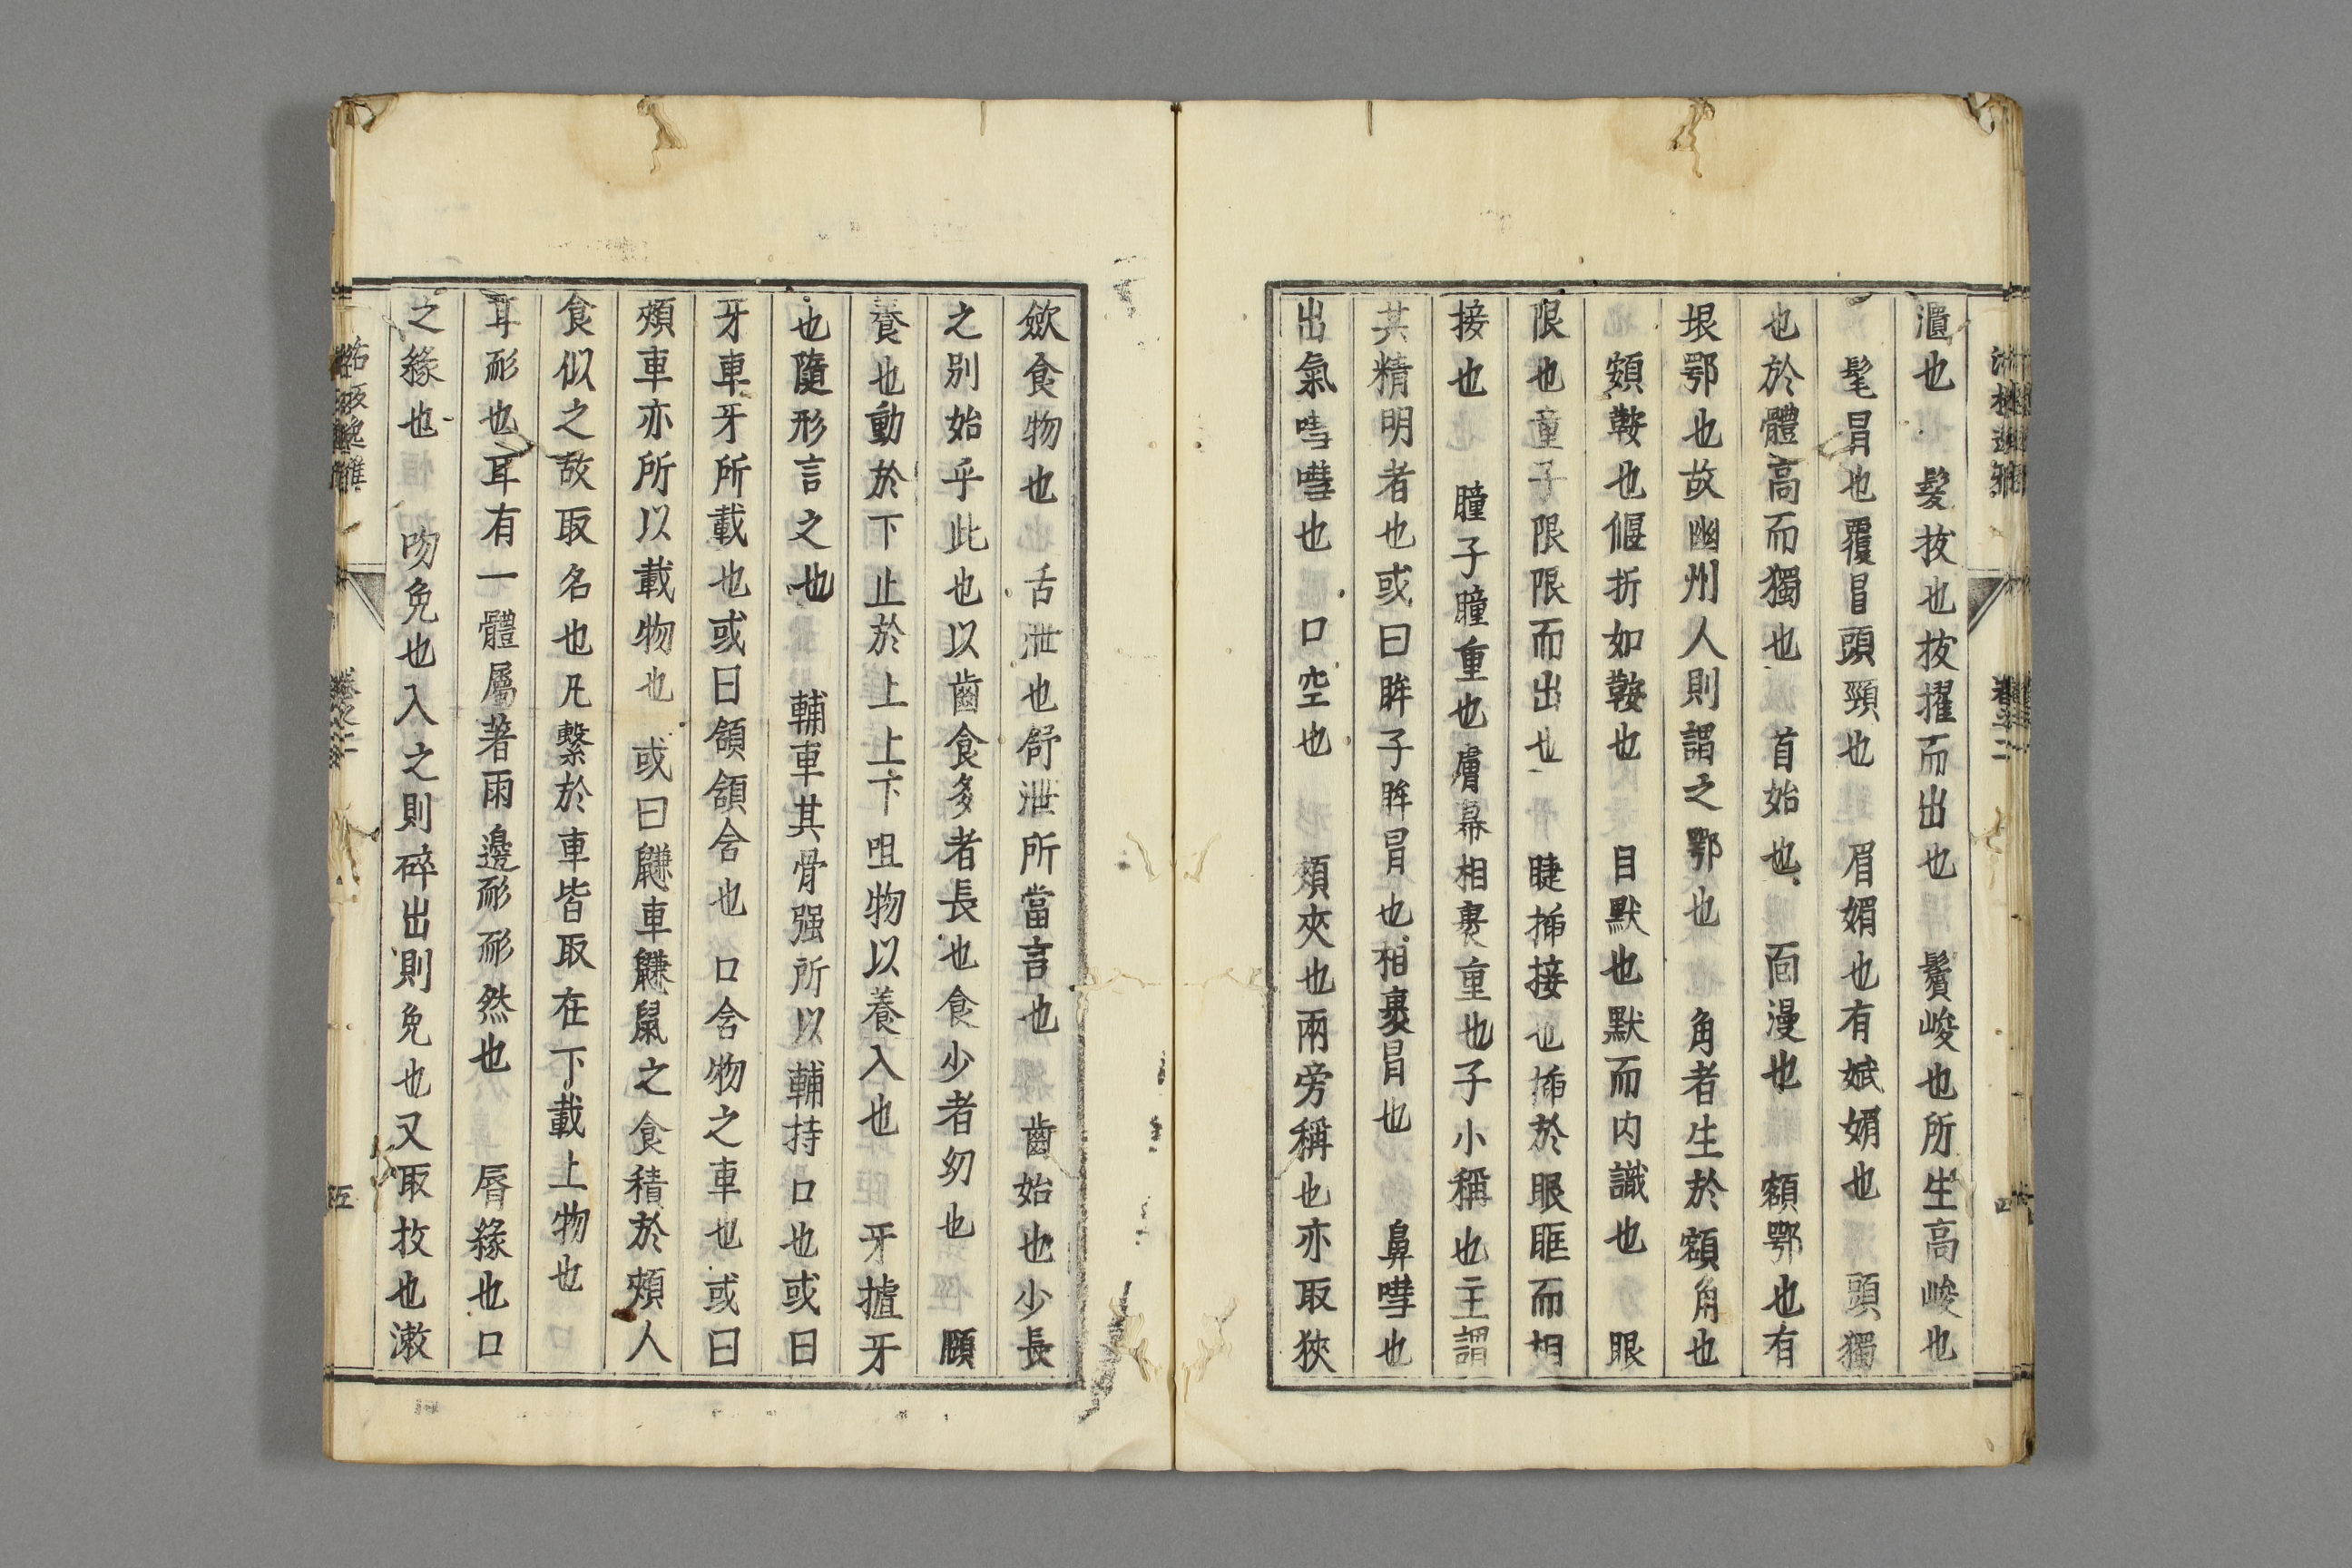 逸雅
卷之二
四
濆也　髮拔也拔擢而出也　鬢峻也所生高峻也
髦冒也覆冒頭頸也　眉媚也有娬媚也　頭獨
也於體高而獨也　首始也　面漫也　額鄂也有
垠鄂也故幽州人則謂之鄂也　角者生於額角也
頞鞍也偃折如鞍也　目默也默而内識也　眼
限也童子限限而出也　睫揷接也揷於眼眶而相
接也　瞳子瞳重也膚幕相裹重也子小稱也主謂
其精明者也或曰眸子眸冒也相裹冒也　鼻嘒也
出氣嘒嘒也　口空也　頰夾也兩旁稱也亦取狹
歛食物也　舌泄也舒泄所當言也　齒始也少長
之别始乎此也以齒食多者長也食少者幼也　頤
養也動於下止於上上下咀物以養人也　牙樝牙
也隨形言之也　輔車其骨强所以輔持口也或曰
牙車牙所載也或曰頷頷含也　口含物之車也或曰
頰車亦所以載物也　或曰鼸車鼸鼠之食積於頰人
食似之故取名也凡繫於車皆取在下載上物也
耳耏也耳有一體屬著兩邊耏耏然也　脣緣也口
之緣也　吻免也入之則碎出則免也又取抆也漱
逸雅
卷之二
五